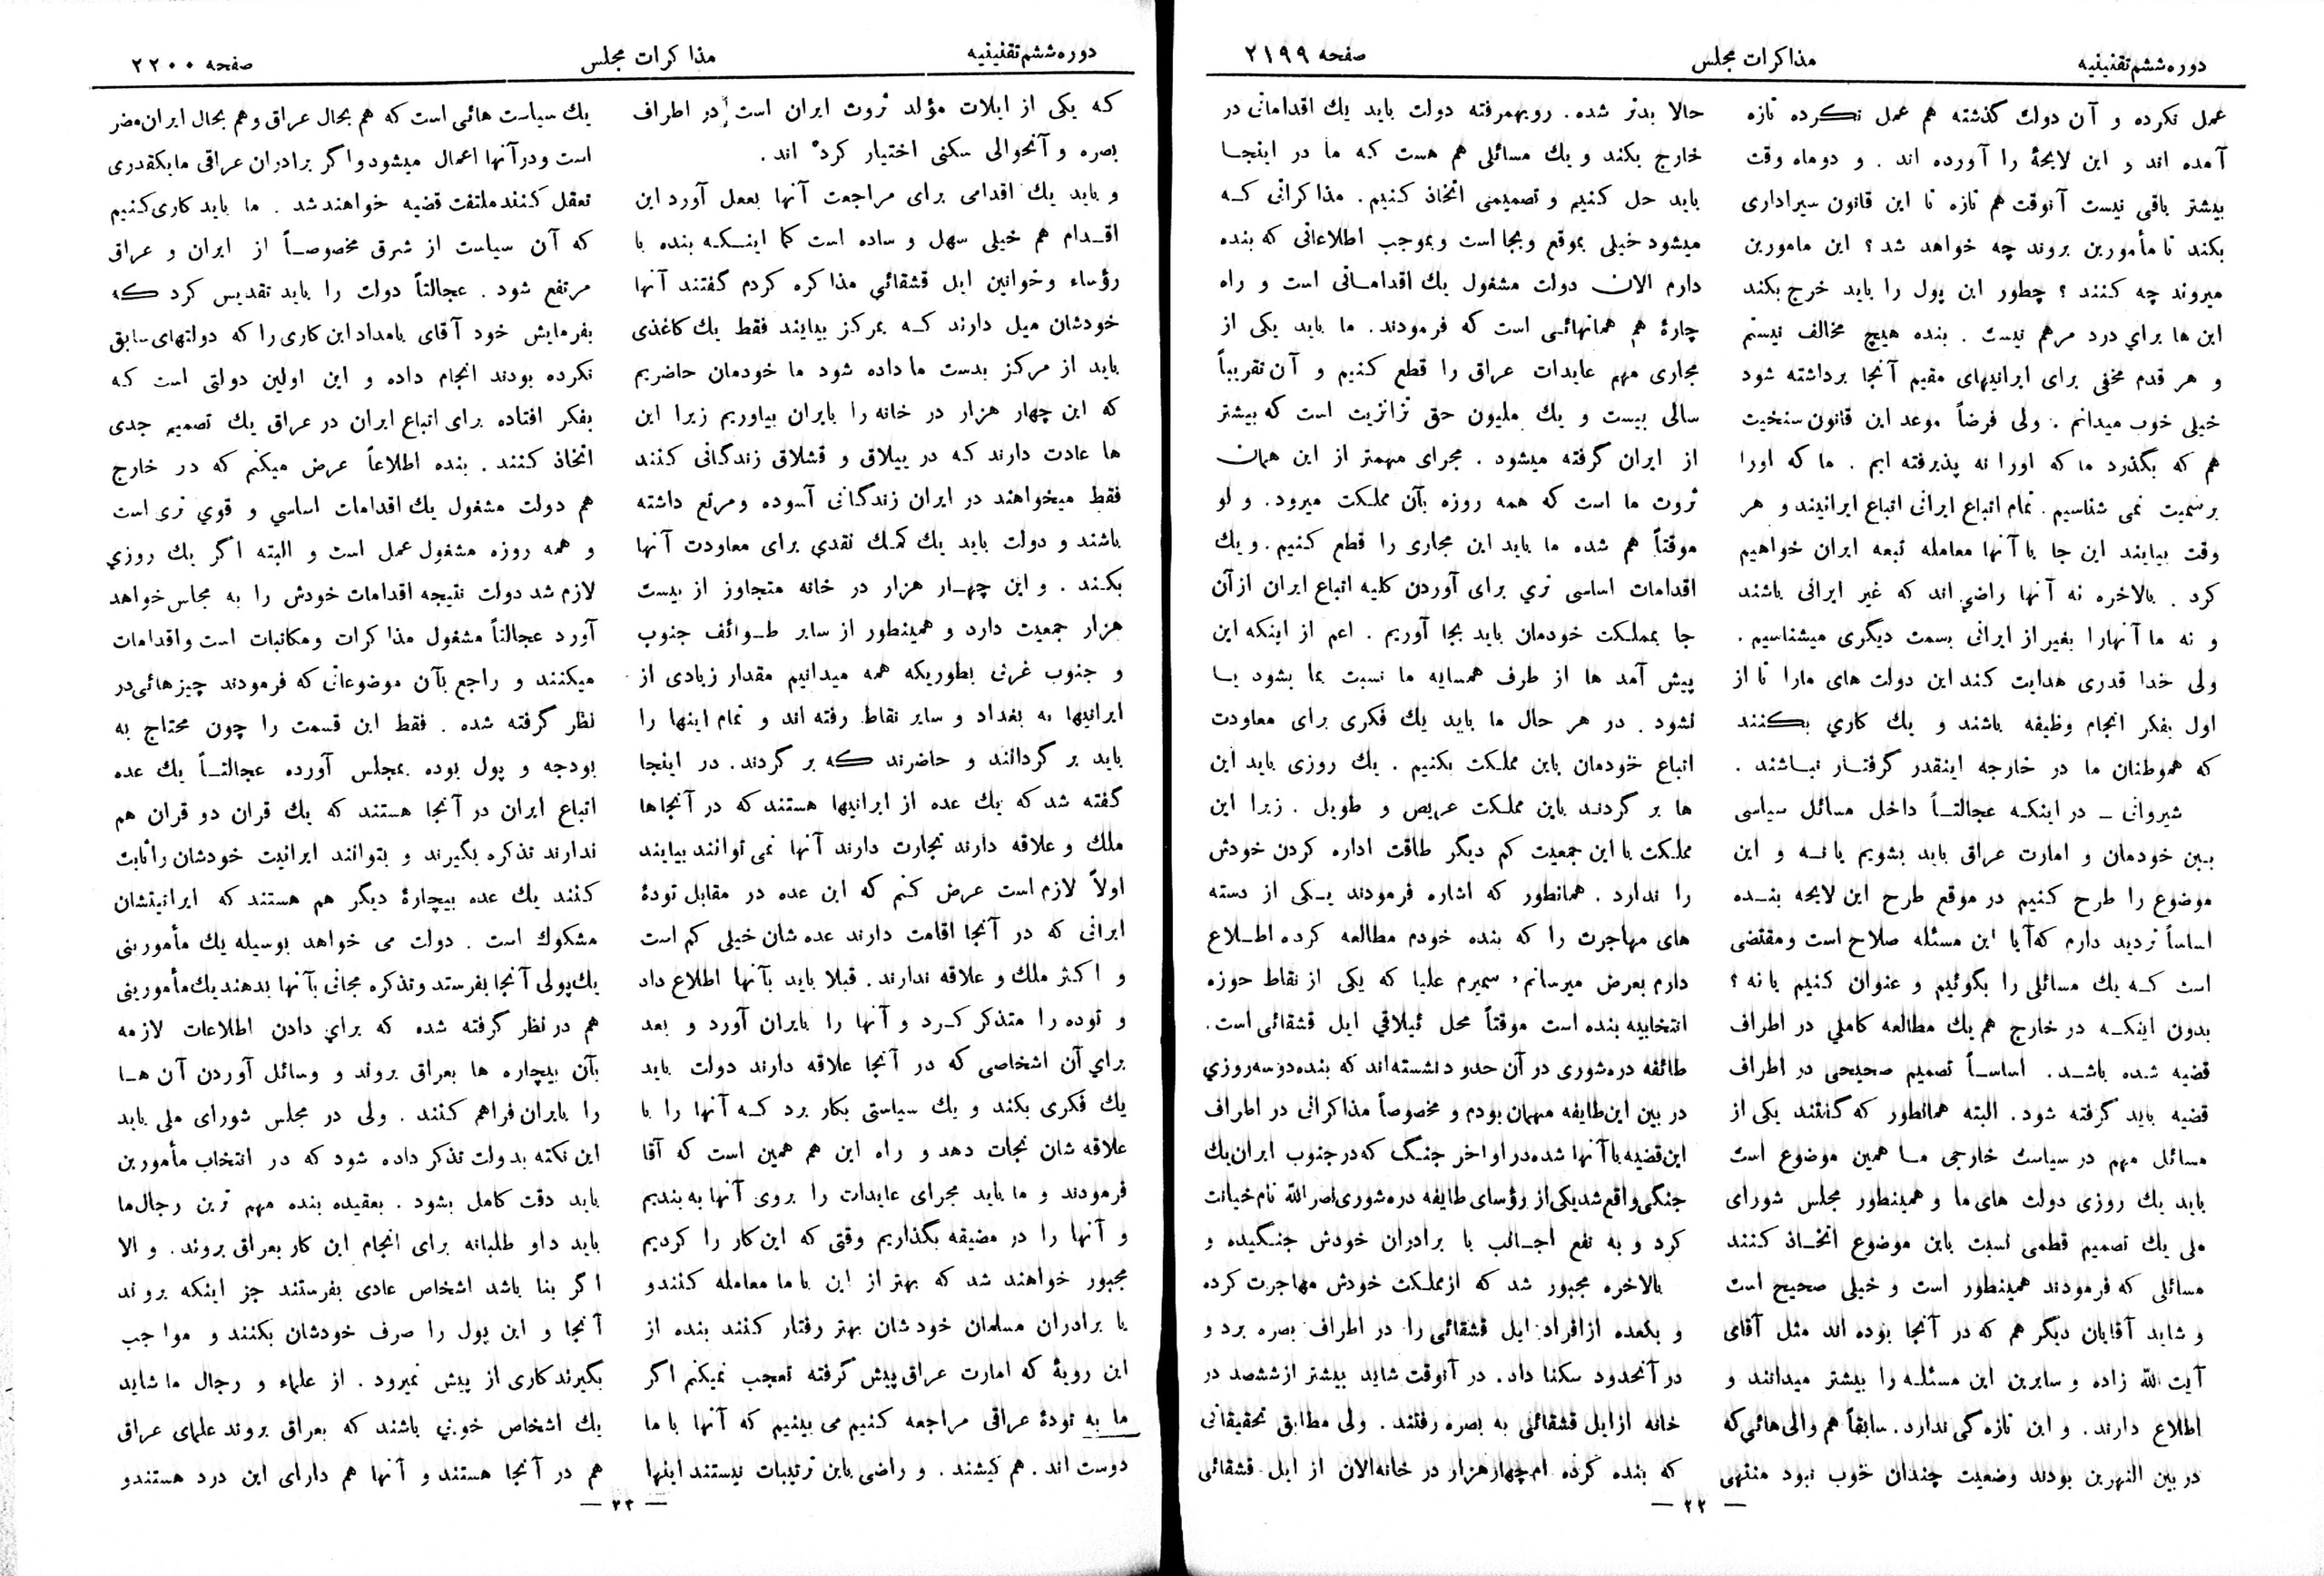 دوره ششم تقنینیه
مذاکرات مجلس
صفحه ۲۱۹۹
عمل نکرده و آن دولت گذشته هم عمل نکرده تازه
آمده اند و این لایحهٔ را آورده اند . و دوماه وقت
بیشتر باقی نیست آنوقت هم تازه تا این قانون سیراداری
بکند تا مأمورین بروند چه خواهد شد ؟ این مامورین
میروند چه کنند ؟ چطور این پول را باید خرج بکند
این ها برای درد مرهم نیست . بنده هیچ مخالف نیستم
و هر قدم مخفی برای ایرانیهای مقیم آنجا برداشته شود
خیلی خوب میدانم . ولی فرضاً موعد این قانون سنخیت
هم که بگذرد ما که اورا نه پذیرفته ایم . ما که اورا
برسمیت نمی شناسیم . تمام اتباع ایرانی اتباع ایرانیند و هر
وقت بیایند این جا با آنها معامله تبعه ایران خواهیم
کرد . بالاخره نه آنها راضی اند که غیر ایرانی باشند
و نه ما آنهارا بغیر از ایرانی بسمت دیگری میشناسیم .
ولی خدا قدری هدایت کند این دولت های مارا تا از
اول بفکر انجام وظیفه باشند و یك کاری بکنند
که هموطنان ما در خارجه اینقدر گرفتار نباشند .
شیروانی ــ در اینکه عجالتاً داخل مسائل سیاسی
بین خودمان و امارت عراق باید بشویم یا نه و این
موضوع را طرح کنیم در موقع طرح این لایحه بنده
اساساً تردید دارم که آیا این مسئله صلاح است و مقتضی
است که یك مسائلی را بگوئیم و عنوان کنیم یا نه ؟
بدون اینکه در خارج هم یك مطالعه کاملی در اطراف
قضیه شده باشد . اساساً تصمیم صحیحی در اطراف
قضیه باید گرفته شود . البته همانطور که گفتند یکی از
مسائل مهم در سیاست خارجی ما همین موضوع است
باید یك روزی دولت های ما و همینطور مجلس شورای
ملی یك تصمیم قطعی نسبت باین موضوع اتخاذ کنند
مسائلی که فرمودند همینطور است و خیلی صحیح است
و شاید آقایان دیگر هم که در آنجا بوده اند مثل آقای
آیت الله زاده و سایرین این مسئله را بیشتر میدانند و
اطلاع دارند . و این تازه کی ندارد . سابقاً هم والی هائی که
در بین النهرین بودند وضعیت چندان خوب نبود منتهی
حالا بدتر شده . رویهمرفته دولت باید یك اقداماتی در
خارج بکند و یك مسائلی هم هست که ما در اینجا
باید حل کنیم و تصمیمی اتخاذ کنیم . مذاکراتی که
میشود خیلی بموقع وبجا است و بموجب اطلاعاتی که بنده
دارم الان دولت مشغول یك اقداماتی است و راه
چارهٔ هم همانهائی است که فرمودند . ما باید یکی از
مجاری مهم عایدات عراق را قطع کنیم و آن تقریباً
سالی بیست و یك ملیون حق ترانزیت است که بیشتر
از ایران گرفته میشود . مجرای مهمتر از این همان
ثروت ما است که همه روزه بآن مملکت میرود . و لو
موقتاً هم شده ما باید این مجاری را قطع کنیم . و یك
اقدامات اساسی تری برای آوردن کلیه اتباع ایران از آن
جا بمملکت خودمان باید بجا آوریم . اعم از اینکه این
پیش آمد ها از طرف همسایه ما نسبت بما بشود یا
نشود . در هر حال ما باید یك فکری برای معاودت
اتباع خودمان باین مملکت بکنیم . یك روزی باید این
ها بر گردند باین مملکت عریض و طویل . زیرا این
مملکت با این جمعیت کم دیگر طاقت اداره کردن خودش
را ندارد . همانطور که اشاره فرمودند یکی از دسته
های مهاجرت را که بنده خودم مطالعه کرده اطلاع
دارم بعرض میرسانم ، سمیرم علیا که یکی از نقاط حوزه
انتخابیه بنده است موقتاً محل ئیلاقی ایل قشقائی است .
طائفه دره شوری در آن حدود نشسته اند که بنده دوسه روزی
در بین این طایفه مهمان بودم و مخصوصاً مذاکراتی در اطراف
این قضیه با آنها شده در اواخر جنگ که در جنوب ایران یك
جنگی واقع شد یکی از رؤسای طایفه دره شوری نصر الله نام خیانت
کرد و به نفع اجانب با برادران خودش جنگیده و
بالاخره مجبور شد که از مملکت خودش مهاجرت کرده
و یکعده از افراد ایل قشقائی را در اطراف بصره برد و
در آنحدود سکنا داد . در آنوقت شاید بیشتر از ششصد در
خانه از ایل قشقائی به بصره رفتند . ولی مطابق تحقیقاتی
که بنده کرده ام چهار هزار در خانه الان از ایل قشقائی
— ۲۲ —
دوره ششم تقنینیه
مذاکرات مجلس
صفحه ۲۲۰۰
که یکی از ایلات مؤلد ثروت ایران است در اطراف
بصره و آنحوالی سکنی اختیار کرده اند .
و باید یك اقدامی برای مراجعت آنها بعمل آورد این
اقدام هم خیلی سهل و ساده است کما اینکه بنده با
رؤساء و خوانین ایل قشقائی مذاکره کردم گفتند آنها
خودشان میل دارند که بمرکز بیایند فقط یك کاغذی
باید از مرکز بدست ما داده شود ما خودمان حاضریم
که این چهار هزار در خانه را بایران بیاوریم زیرا این
ها عادت دارند که در ییلاق و قشلاق زندگانی کنند
فقط میخواهند در ایران زندگانی آسوده و مرتع داشته
باشند و دولت باید یك کمک نقدی برای معاودت آنها
بکند . و این چهار هزار در خانه متجاوز از بیست
هزار جمعیت دارد و همینطور از سایر طوائف جنوب
و جنوب غربی بطوریکه همه میدانیم مقدار زیادی از
ایرانیها به بغداد و سایر نقاط رفته اند و تمام اینها را
باید بر گردانند و حاضرند که بر گردند . در اینجا
گفته شد که یك عده از ایرانیها هستند که در آنجاها
ملك و علاقه دارند تجارت دارند آنها نمی توانند بیایند
اولاً لازم است عرض کنم که این عده در مقابل تودهٔ
ایرانی که در آنجا اقامت دارند عده شان خیلی کم است
و اکثر ملك و علاقه ندارند . قبلا باید بآنها اطلاع داد
و توده را متذکر کرد و آنها را بایران آورد و بعد
برای آن اشخاصی که در آنجا علاقه دارند دولت باید
یك فکری بکند و یك سیاستی بکار برد که آنها را با
علاقه شان نجات دهد و راه این هم همین است که آقا
فرمودند و ما باید مجرای عایدات را بروی آنها به بندیم
و آنها را در مضیقه بگذاریم وقتی که این کار را کردیم
مجبور خواهند شد که بهتر از این با ما معامله کنندو
با برادران مسلمان خودشان بهتر رفتار کنند بنده از
این رویهٔ که امارت عراق پیش گرفته تعجب نمیکنم اگر
ما به تودهٔ عراقی مراجعه کنیم می بینیم که آنها با ما
دوست اند . هم کیشند . و راضی باین ترتیبات نیستند اینها
یك سیاست هائی است که هم بحال عراق و هم بحال ایران مضر
است و در آنها اعمال میشود و اگر برادران عراقی ما یکقدری
تعقل کنند ملتفت قضیه خواهند شد . ما باید کاری کنیم
که آن سیاست از شرق مخصوصاً از ایران و عراق
مرتفع شود . عجالتاً دولت را باید تقدیس کرد که
بفرمایش خود آقای بامداد این کاری را که دولتهای سابق
نکرده بودند انجام داده و این اولین دولتی است که
بفکر افتاده برای اتباع ایران در عراق یك تصمیم جدی
اتخاذ کنند . بنده اطلاعاً عرض میکنم که در خارج
هم دولت مشغول یك اقدامات اساسی و قوی تری است
و همه روزه مشغول عمل است و البته اگر یك روزی
لازم شد دولت نتیجه اقدامات خودش را به مجلس خواهد
آورد عجالتاً مشغول مذاکرات و مکاتبات است و اقدامات
میکنند و راجع بآن موضوعاتی که فرمودند چیز هائی در
نظر گرفته شده . فقط این قسمت را چون محتاج به
بودجه و پول بوده بمجلس آورده عجالتاً یك عده
اتباع ایران در آنجا هستند که یك قران دو قران هم
ندارند تذکره بگیرند و بتوانند ایرانیت خودشان را ثابت
کنند یك عده بیچارهٔ دیگر هم هستند که ایرانیتشان
مشکوك است . دولت می خواهد بوسیله یك مأمورینی
یك پولی آنجا بفرستد و تذکره مجانی بآنها بدهند یك مأمورینی
هم در نظر گرفته شده که برای دادن اطلاعات لازمه
بآن بیچاره ها بعراق بروند و وسائل آوردن آن ها
را بایران فراهم کنند . ولی در مجلس شورای ملی باید
این نکته بدولت تذکر داده شود که در انتخاب مأمورین
باید دقت کامل بشود . بعقیده بنده مهم ترین رجال ما
باید داو طلبانه برای انجام این کار بعراق بروند . و الا
اگر بنا باشد اشخاص عادی بفرستند جز اینکه بروند
آنجا و این پول را صرف خودشان بکنند و مواجب
بگیرند کاری از پیش نمیرود . از علماء و رجال ما شاید
یك اشخاص خوبی باشند که بعراق بروند علمای عراق
هم در آنجا هستند و آنها هم دارای این درد هستندو
— ۲۳ —